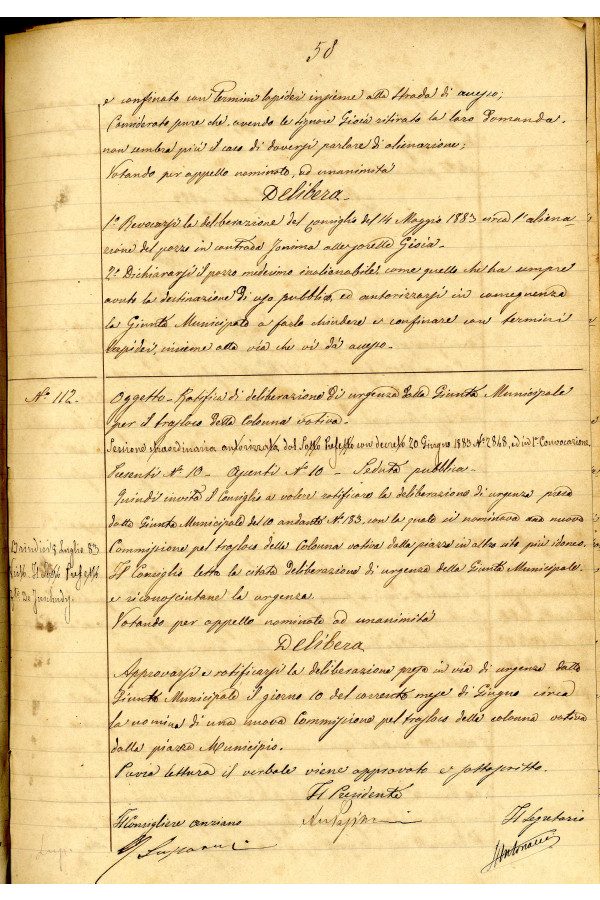 58
e confinato con termini lapidei insieme alla strada di accesso;
Considerato pure che avendo le signore Gioia ritirato la loro domanda,
non sembra più il caso di doversi parlare di alienazione;
Votando per appello nominato, ad unanimità
Delibera
1º Revocarsi la deliberazione del Consiglio del 14 Maggio 1883 circa l'aliena-
zione del pozzo in contrada alle sorelle Gioia.
2º Dichiararsi il pozzo medesimo inalienabile come quello che ha sempre
avuto la destinazione di uso pubblico, ed autorizzarsi in conseguenza
la Giunta Municipale a farlo chiudere e confinare con termini
lapidei, insieme alla via che vi dà accesso.
Nº 112.
Oggetto - Ratifica di deliberazione di urgenza della Giunta Municipale
per il trasloco della Colonna votiva.
Sessione straordinaria autorizzata dal Sotto Prefetto con decreto 20 Giugno 1883 Nº 2848, ed in 1ª Convocazione.
Presenti Nº 10 - Assenti Nº 10 - Seduta pubblica -
Quindi invita il Consiglio a volere ratificare la deliberazione di urgenza presa
dalla Giunta Municipale del 10 andante Nº 183, con la quale si nominava una nuova
Commissione pel trasloco della Colonna votiva dalla piazza in altro sito più idoneo.
Il Consiglio letta la citata deliberazione di urgenza della Giunta Municipale
e riconoscintane la urgenza.
Votando per appello nominale ad unanimità
Brindisi 8 Luglio 83
Visto. Il Sotto Prefetto
Delibera
Approvarsi e ratificarsi la deliberazione presa in via di urgenza dalla
Giunta Municipale il giorno 10 del corrente mese di Giugno circa
la nomina di una nuova Commissione pel trasloco della colonna votiva
dalla piazza Municipio.
Previa lettura il verbale viene approvato e sottoscritto.
Il Presidente
Il Consigliere anziano
Il Segretario
Antonacci